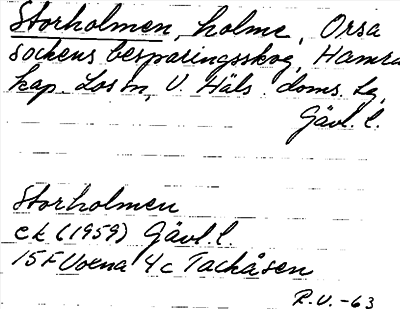 Storholmen, holme, Orsa
sockens besparingsskog, Hamra
kap. Los sn, V. Häls. doms. lg,
Gävl. l.
Storholmen
ek (1959) Gävl. l.
15F Voxna 4c Tackåsen
R.U. -63